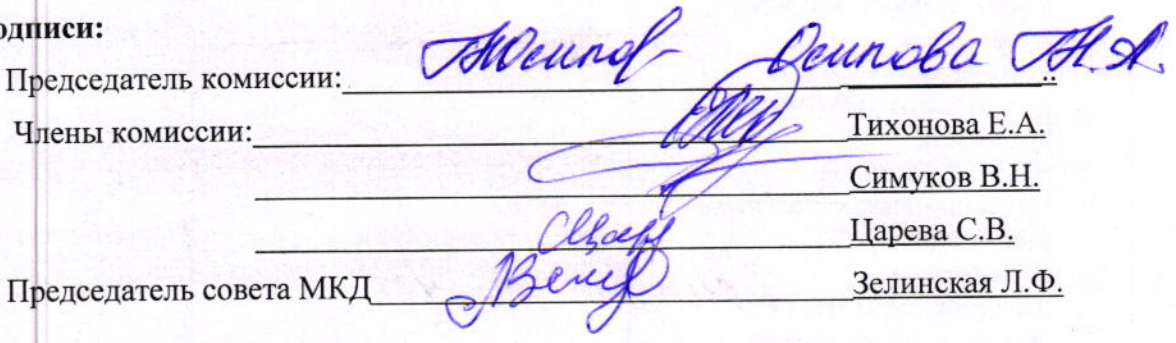 одписи:
Председатель комиссии: Осипова Т.А. ..
Члены комиссии: Тихонова Е.А.
Симуков В.Н.
Царева С.В.
Председатель совета МКД Зелинская Л.Ф.